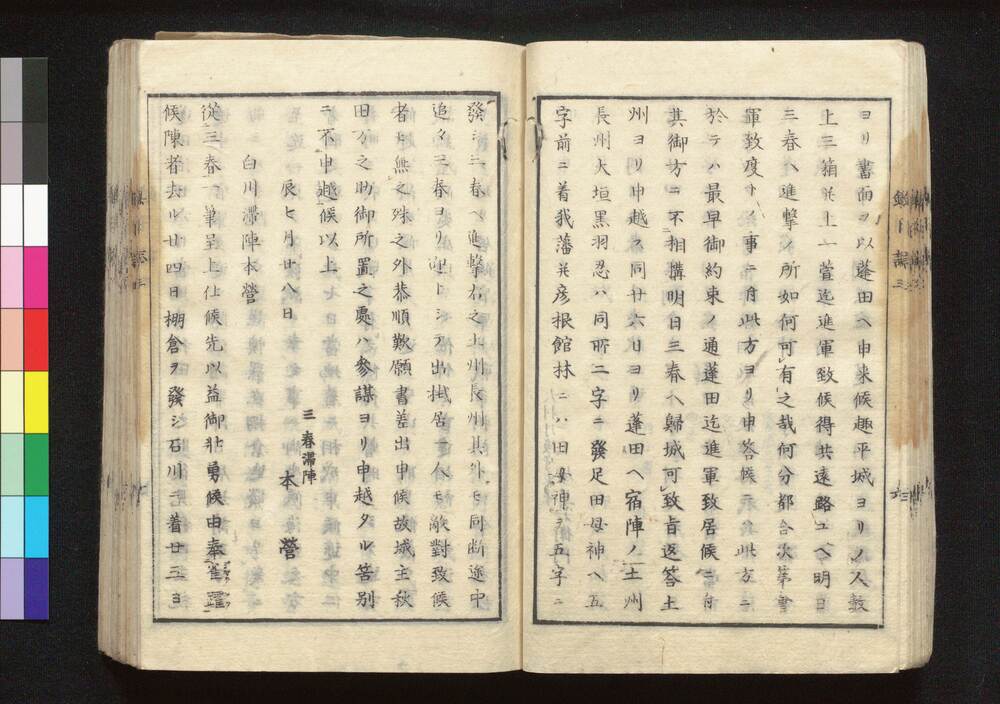 ヨリ書面ヲ以蓬田ヘ申来候趣平城ヨリノ人数
上三箱并上ノ萱迄進軍致候得共遠路ユヘ明日
三春ヘ進撃ノ所如何可有之哉何分都合次第
軍致度ト事ニ付此方ヨリ申答候此方ニ
於テハ最早御約束ノ通蓬田迄進軍致居候ニ付
其御方ニ不相構明日三春ヘ歸城可致旨返答土
州ヨリ申越ス同廿六日ヨリ蓬田ヘ宿陣ノ土州
長州大垣黒羽忍ハ同所二字ニ發足田母神ヘ五
字前ニ着我藩并彦根館林ニハ田母神ヲ五字ニ
發シ三春ヘ進撃右之土州長州其外モ同断途中
追々三春ヨリ出掛居一人モ敵對致候
者モ無之殊之外恭順歎願書差出申候故城主秋
田方之助御所置之處ハ參謀ヨリ申越タル筈別
ニ不申越候以上
辰七月廿八日
三春滞陣
本營
白川滞陣本營
從三春一筆呈上仕候先以益御壯勇候由奉雀躍
候陳者去ル廿四日棚倉ヲ發シ石川ニ着廿五ヨ